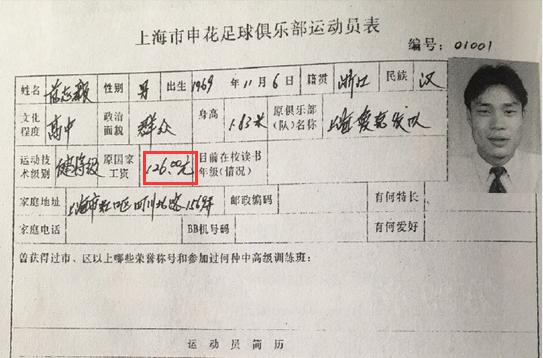 上海市申花足球俱乐部运动员表
编号：01001
姓名 性别 男 出生 1969 年 11 月 6 日 籍贯 浙江 民族 汉
文化程度 高中 政治面貌 群众 身高 1.83米 原俱乐部(队)名称 上海
运动技术级别 健将级 原国家工资 126.00元 目前在校读书年级(情况)
家庭地址 上海市虹口区四川北路1569弄 邮政编码 有何特长
家庭电话 BB机号码 有何爱好
曾获得过市、区以上哪些荣誉称号和参加过何种中高级训练班：
运动员简历